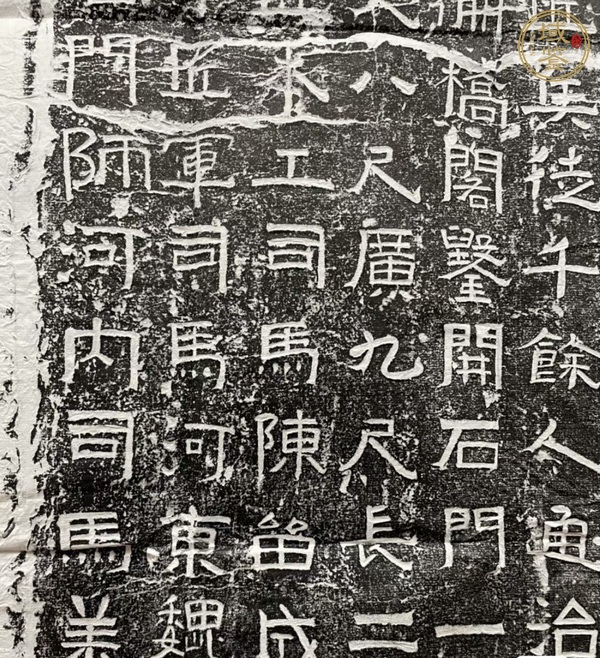 徒千餘人通治
橋閣鑿開石門一
八尺廣九尺長二
木工司馬陳留成
軍司馬河東魏
門師河内司馬